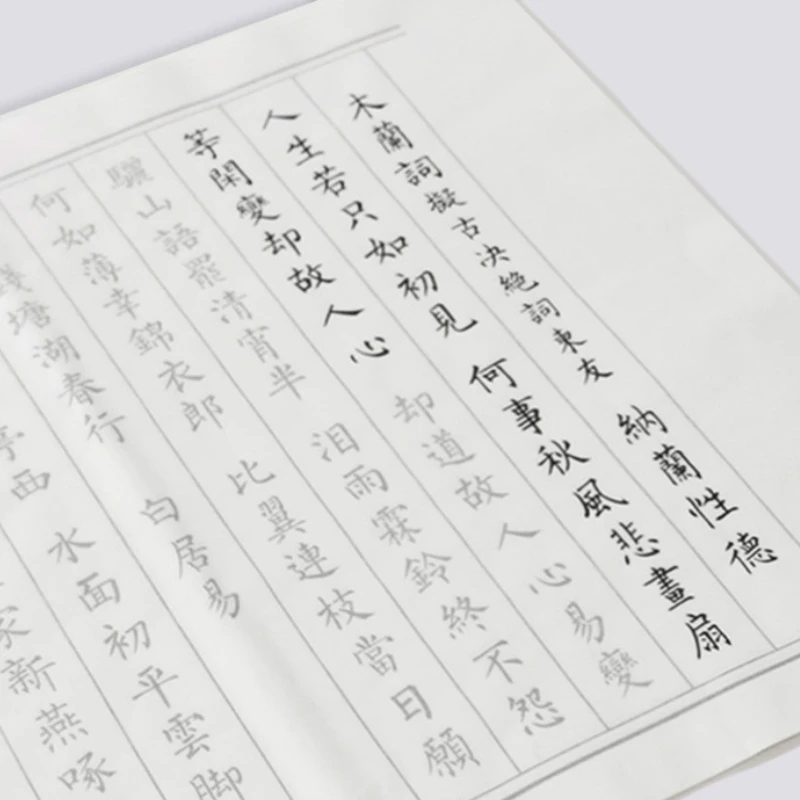 木蘭詞擬古决絶詞柬友 納蘭性德
人生若只如初見 何事秋風悲畫扇
等閑變却故人心 却道故人心易變
驪山語罷清宵半 泪雨霖鈴終不怨
何如薄幸錦衣郎 比翼連枝當日願
錢塘湖春行 白居易
亭西 水面初平雲脚
家新燕啄